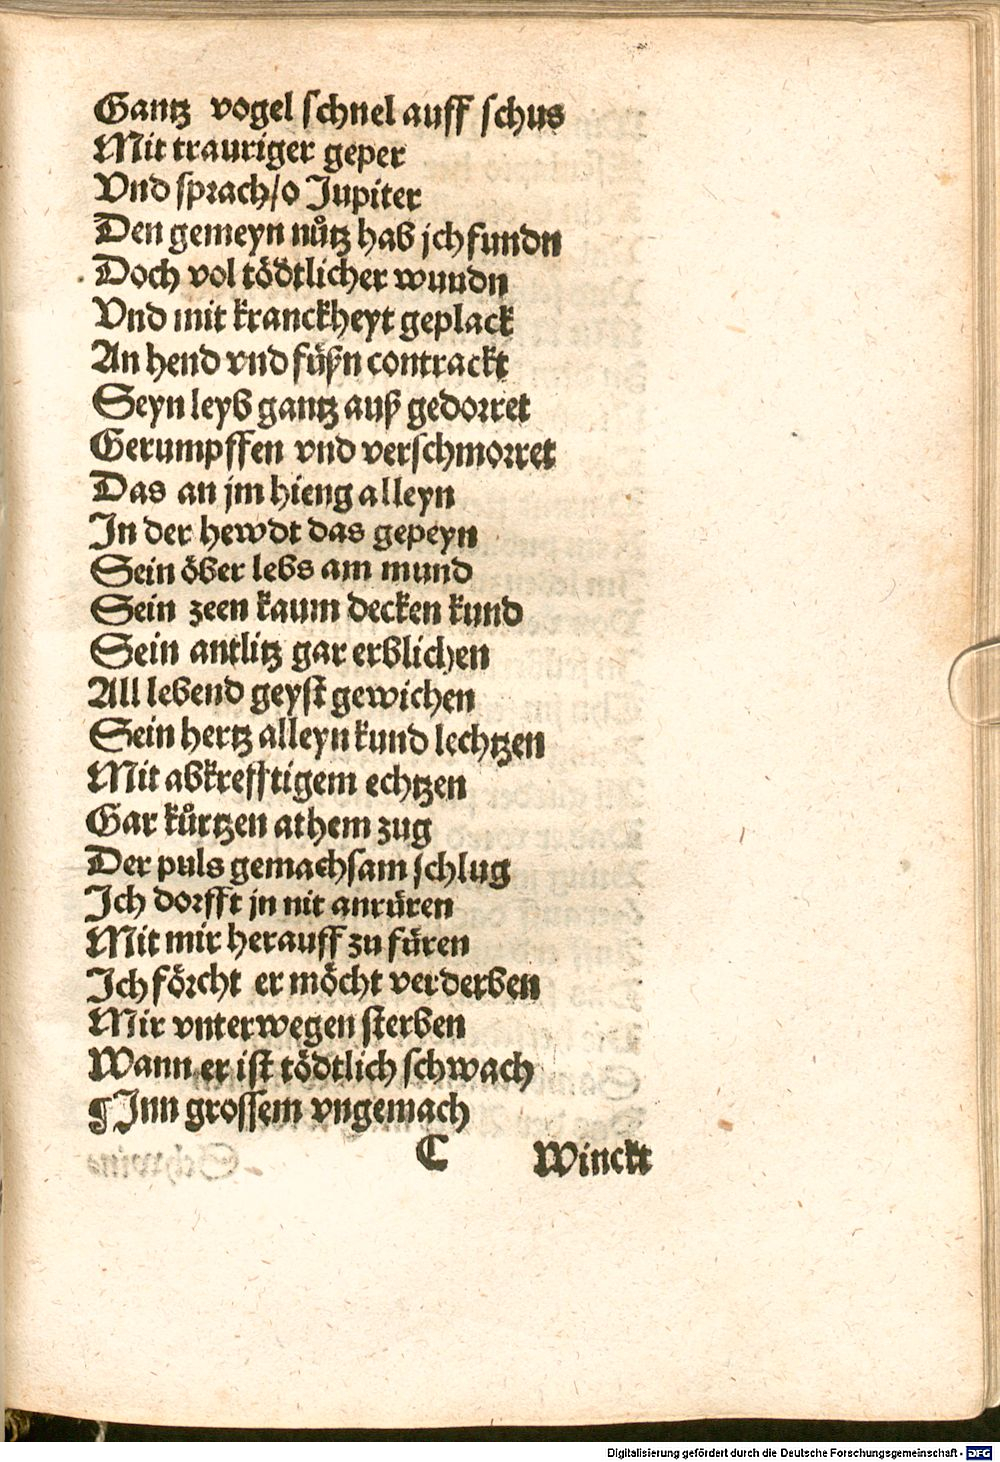 Gantz vogel schnel auff schus
Mit trauriger geper
Vnd sprach/o Jupiter
Den gemeyn nůtz hab jch fundn
Doch vol tödtlicher wundn
Vnd mit kranckheyt geplack
An hend vnd füßn contrackt
Seyn leyb gantz auß gedorret
Gerumpffen vnd verschmorret
Das an jm hieng alleyn
In der hewdt das gepeyn
Sein öber lebs am mund
Sein zeen kaum decken kund
Sein antlitz gar erblichen
All lebend geyst gewichen
Sein hertz alleyn kund lechtzen
Mit abkrefftigem echtzen
Gar kůrtzen athem zug
Der puls gemachsam schlug
Ich dorfft jn nit anrüren
Mit mir herauff zu füren
Ich förcht er möcht verderben
Mir vnterwegen sterben
Wann er ist tödtlich schwach
¶Inn grossem vngemach
C Winckt
Digitalisierung gefördert durch die Deutsche Forschungsgemeinschaft - DFG